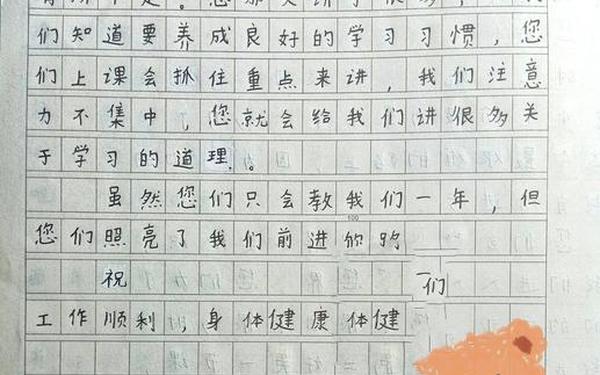 们知道要养成良好的学习习惯，您
们上课会抓住重点来讲，我们注意
力不集中，您就会给我们讲很多关
于学习的道理。
虽然您们只会教我们一年，但
您们照亮了我们前进
祝 们
工作顺利，身体健康体健